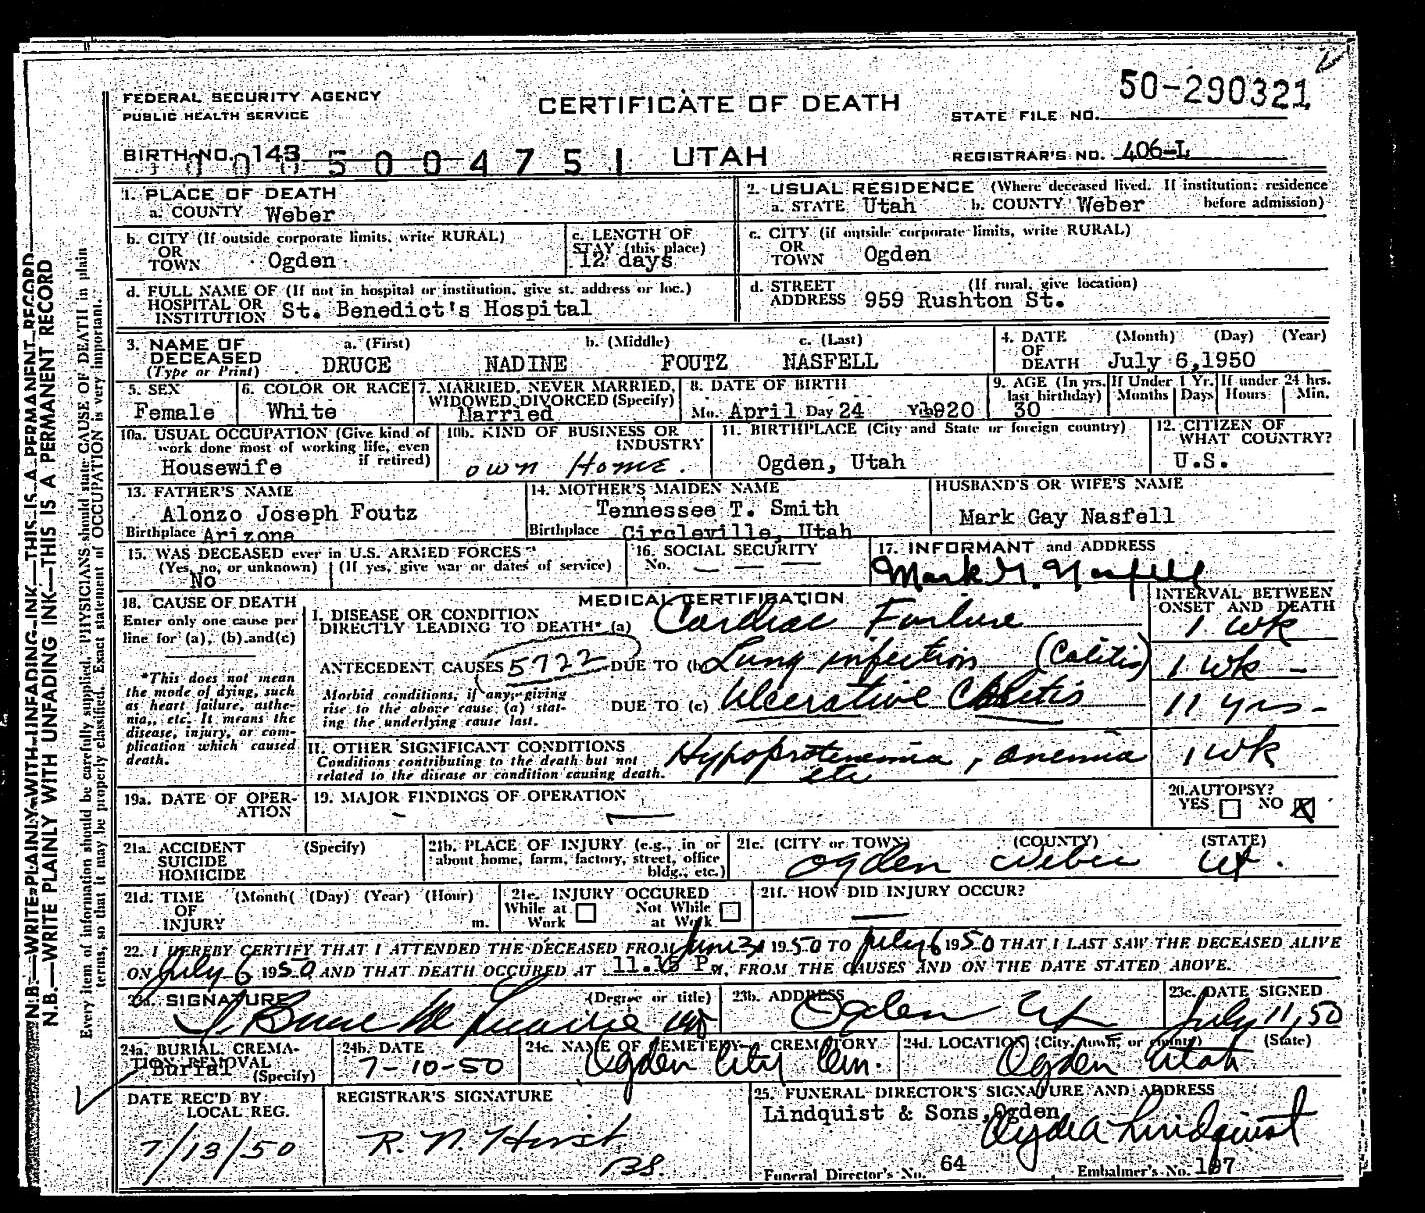 50-290321
FEDERAL SECURITY AGENCY
PUBLIC HEALTH SERVICE
CERTIFICATE OF DEATH
STATE FILE NO.
BIRTH NO. 143
5004751
UTAH
REGISTRAR'S NO. 406-L
1. PLACE OF DEATH
a. COUNTY Weber
2. USUAL RESIDENCE (Where deceased lived. If institution: residence before admission)
a. STATE Utah b. COUNTY Weber
b. CITY (If outside corporate limits, write RURAL)
OR TOWN Ogden
c. LENGTH OF STAY (this place)
12 days
c. CITY (if outside corporate limits, write RURAL)
OR TOWN Ogden
d. FULL NAME OF (If not in hospital or institution, give st. address or loc.)
HOSPITAL OR INSTITUTION St. Benedict's Hospital
d. STREET ADDRESS (If rural, give location)
959 Rushton St.
3. NAME OF DECEASED (Type or Print)
a. (First) b. (Middle) c. (Last)
DRUCE NADINE FOUTZ NASFELL
4. DATE OF DEATH (Month) (Day) (Year)
July 6,1950
5. SEX
Female
6. COLOR OR RACE
White
7. MARRIED, NEVER MARRIED, WIDOWED DIVORCED (Specify)
Married
8. DATE OF BIRTH
Mo. April Day 24 Yr. 1920
9. AGE (In yrs. last birthday)
30
If Under 1 Yr. Months Days
If under 24 hrs. Hours Min.
10a. USUAL OCCUPATION (Give kind of work done most of working life, even if retired)
Housewife
10b. KIND OF BUSINESS OR INDUSTRY
own Home.
11. BIRTHPLACE (City and State or foreign country)
Ogden, Utah
12. CITIZEN OF WHAT COUNTRY?
U.S.
13. FATHER'S NAME
Alonzo Joseph Foutz
Birthplace Arizona
14. MOTHER'S MAIDEN NAME
Tennessee T. Smith
Birthplace Circleville, Utah
HUSBAND'S OR WIFE'S NAME
Mark Gay Nasfell
15. WAS DECEASED ever in U.S. ARMED FORCES?
(Yes, no, or unknown) (If yes, give war or dates of service)
No
16. SOCIAL SECURITY
No. — — —
17. INFORMANT and ADDRESS
Mark G. Nasfell
18. CAUSE OF DEATH
Enter only one cause per line for (a), (b) and (c)
*This does not mean the mode of dying, such as heart failure, asthenia, etc. It means the disease, injury, or complication which caused death.
MEDICAL CERTIFICATION
INTERVAL BETWEEN ONSET AND DEATH
I. DISEASE OR CONDITION DIRECTLY LEADING TO DEATH* (a) Cardiac Failure
1 wk
ANTECEDENT CAUSES 5722 DUE TO (b) Lung infection (Colitis)
1 wk -
Morbid conditions, if any, giving rise to the above cause (a) stating the underlying cause last.
DUE TO (c) Ulcerative Colitis
11 yrs -
II. OTHER SIGNIFICANT CONDITIONS
Conditions contributing to the death but not related to the disease or condition causing death.
Hypoproteinemia, anemia etc
1 wk
19a. DATE OF OPERATION
-
19. MAJOR FINDINGS OF OPERATION
—
20. AUTOPSY?
YES NO X
21a. ACCIDENT SUICIDE HOMICIDE (Specify)
21b. PLACE OF INJURY (e.g., in or about home, farm, factory, street, office bldg., etc.)
21c. (CITY or TOWN) (COUNTY) (STATE)
Ogden Weber Ut.
21d. TIME OF INJURY (Month) (Day) (Year) (Hour) m.
21e. INJURY OCCURED
While at Work Not While at Work
21f. HOW DID INJURY OCCUR?
—
22. I HEREBY CERTIFY THAT I ATTENDED THE DECEASED FROM June 30 1950 TO July 6 1950 THAT I LAST SAW THE DECEASED ALIVE
ON July 6 1950 AND THAT DEATH OCCURED AT 11:15 P m. FROM THE CAUSES AND ON THE DATE STATED ABOVE.
23a. SIGNATURE (Degree or title)
23b. ADDRESS
Ogden Ut
23c. DATE SIGNED
July 11, 50
24a. BURIAL, CREMATION, REMOVAL (Specify)
Burial
24b. DATE
7-10-50
24c. NAME OF CEMETERY CREMATORY
Ogden City Cem.
24d. LOCATION (City, town, or county) (State)
Ogden Utah
DATE REC'D BY LOCAL REG.
7/13/50
REGISTRAR'S SIGNATURE
R. N. Hirst
25. FUNERAL DIRECTOR'S SIGNATURE AND ADDRESS
Lindquist & Sons, Ogden
Clyde A Lindquist
Funeral Director's No. 64
Embalmer's No. 197
N.B.—WRITE PLAINLY WITH UNFADING INK—THIS IS A PERMANENT RECORD
N.B.—WRITE PLAINLY WITH UNFADING INK—THIS IS A PERMANENT RECORD
Every item of information should be carefully supplied. PHYSICIANS should state CAUSE OF DEATH in plain
terms, so that it may be properly classified. Exact statement of OCCUPATION is very important.